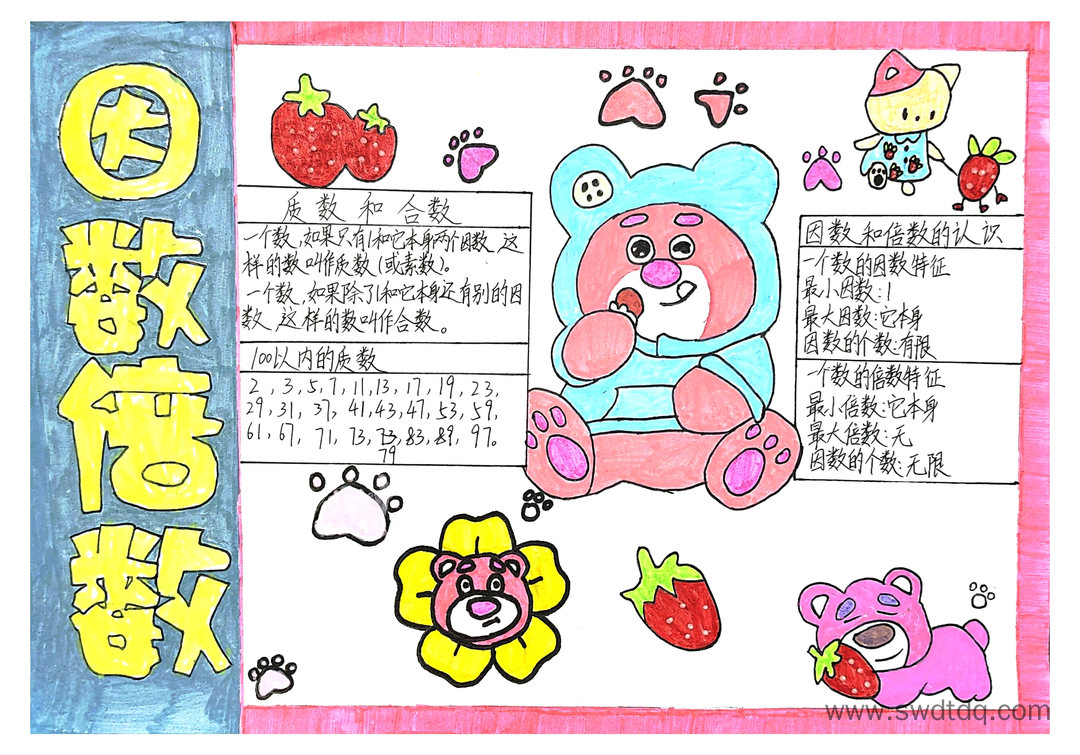 因数倍数
质数和合数
一个数,如果只有1和它本身两个因数,这
样的数叫作质数(或素数)。
一个数,如果除了1和它本身还有别的因
数,这样的数叫作合数。
100以内的质数
2,3,5,7,11,13,17,19,23,
29,31,37,41,43,47,53,59,
61,67,71,73,73,83,89,97。
79
因数和倍数的认识
一个数的因数特征
最小因数:1
最大因数:它本身
因数的个数:有限
一个数的倍数特征
最小倍数:它本身
最大倍数:无
因数的个数:无限
www.swdtdq.com